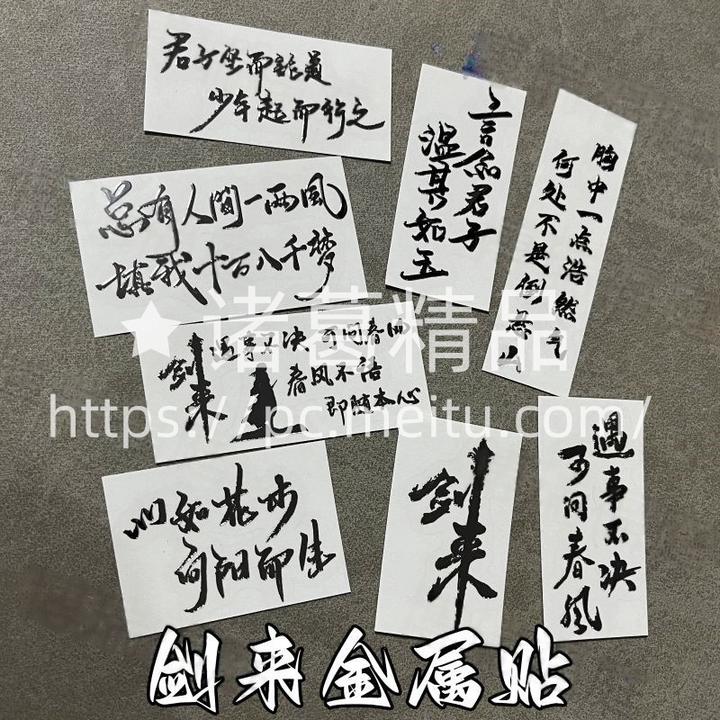 君子坐而论道
少年起而行之
言念君子
温其如玉
胸中一点浩然气
何处不是倒悬山
总有人間一两風
填我十万八千梦
诸葛精品
剑来
遇事不决 可问春风
春风不语
即随本心
https://pc.meitu.com/
心如花木
向阳而生
剑来
遇事不决
可问春风
剑来金属贴